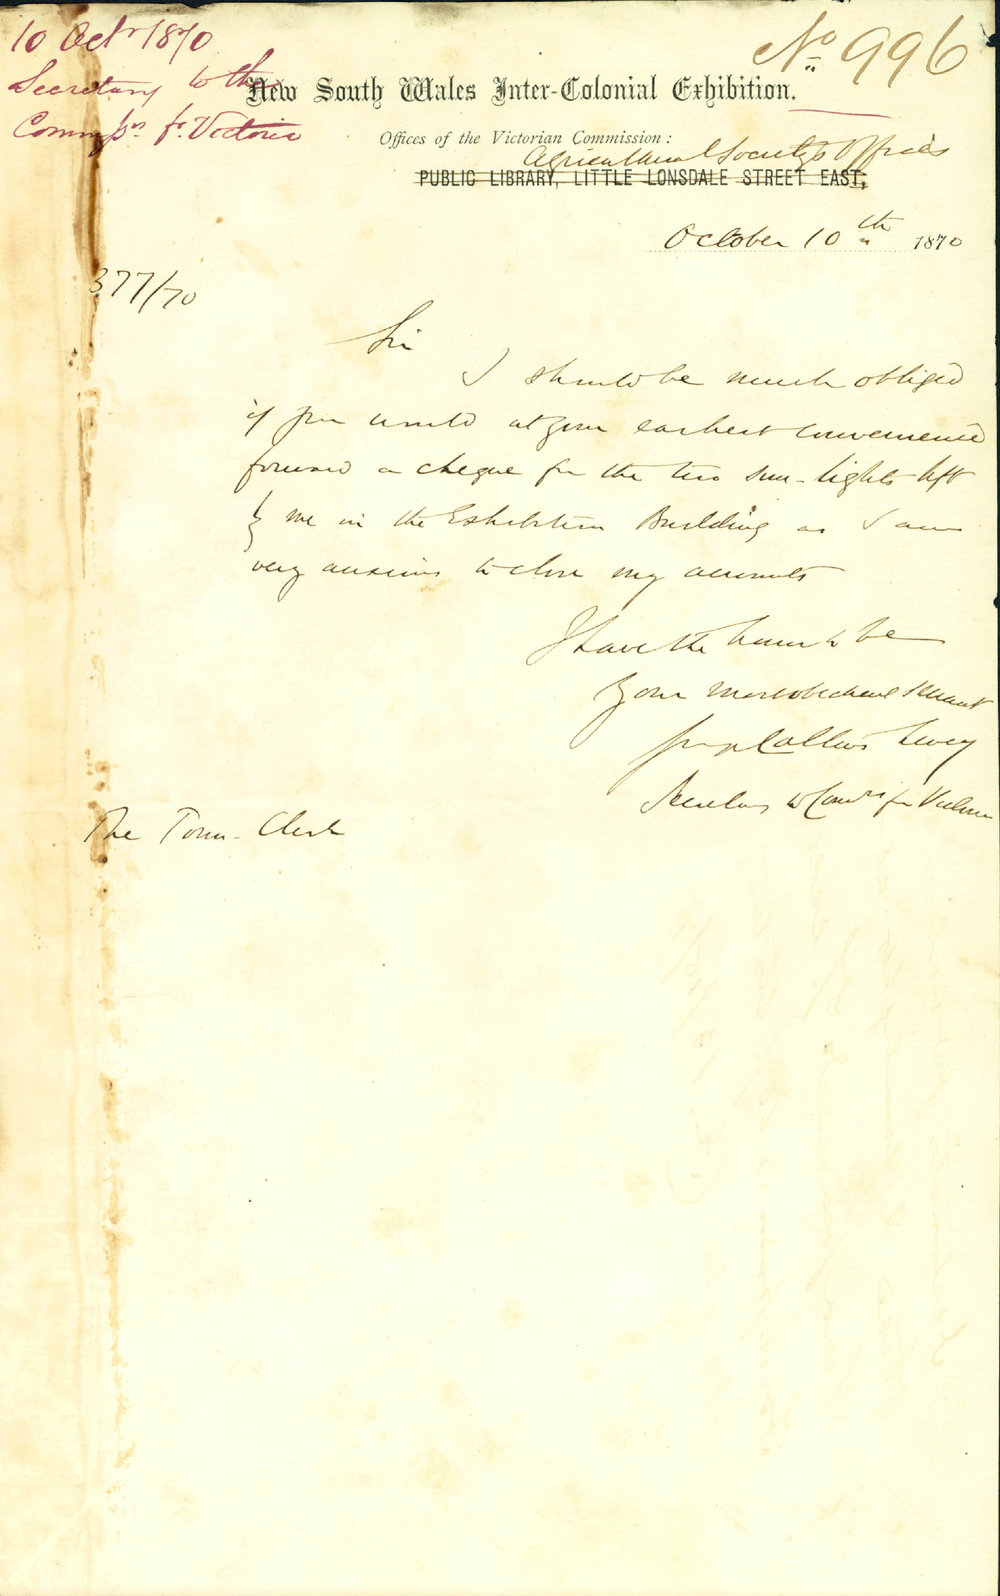 10 Octr 1870
Secretary to the
Commssrs for Victoria
No 996
New South Wales Inter-Colonial Exhibition.
Offices of the Victorian Commission:
Agricultural Society's Offices
PUBLIC LIBRARY, LITTLE LONSDALE STREET EAST,
October 10th 1870
377/70
Sir
I should be much obliged
if you would at your earliest convenience
forward a cheque for the two sun-lights left
by me in the Exhibition Building as I am
very anxious to close my accounts
I have the honor to be
Your most obedient servant
Collins Levey
Secretary to Comrs for Victoria
The Town-Clerk